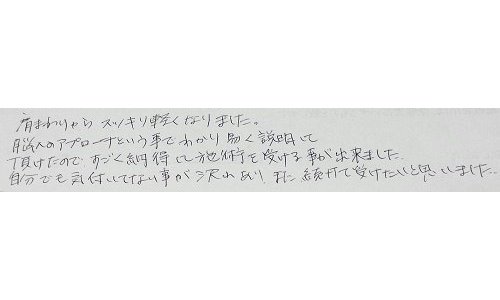 肩まわりから スッキリ軽くなりました。
脳へのアプローチという事でわかり易く説明して
頂けたので すごく納得して施術を受ける事が出来ました。
自分でも気付いてない事が沢山あり、また続けて受けたいと思いました。